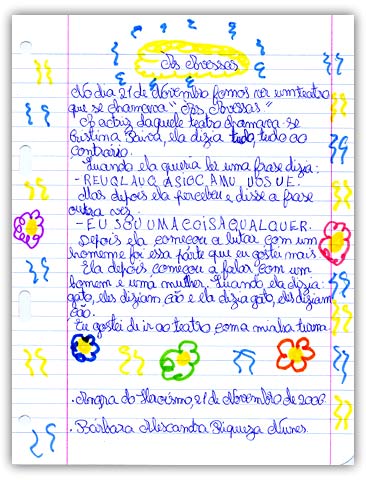 Às Avessas
No dia 21 de Novembro fomos ver um teatro
que se chamava "Às Avessas"
A actriz daquele teatro chamava-se
Cristina Paiva, ela dizia tudo, tudo ao
contrário.
Quando ela queria ler uma frase dizia:
- REUQLAUQ ASIOC AMU UOS UE.
Mas depois ela percebeu e disse a frase
outra vez.
- EU SOU UMA COISA QUALQUER.
Depois ela começou a lutar com um
homeme foi essa parte que eu gostei mais
Ela depois começou a falar com um
homem e uma mulher. Quando ela dizia
gato, eles diziam cão e ela dizia gato, eles diziam
cão.
Eu gostei de ir ao teatro com a minha turma.
. Angra do Heroísmo, 21 de Novembro de 2006
. Bárbara Alexandra Riqueza Nunes